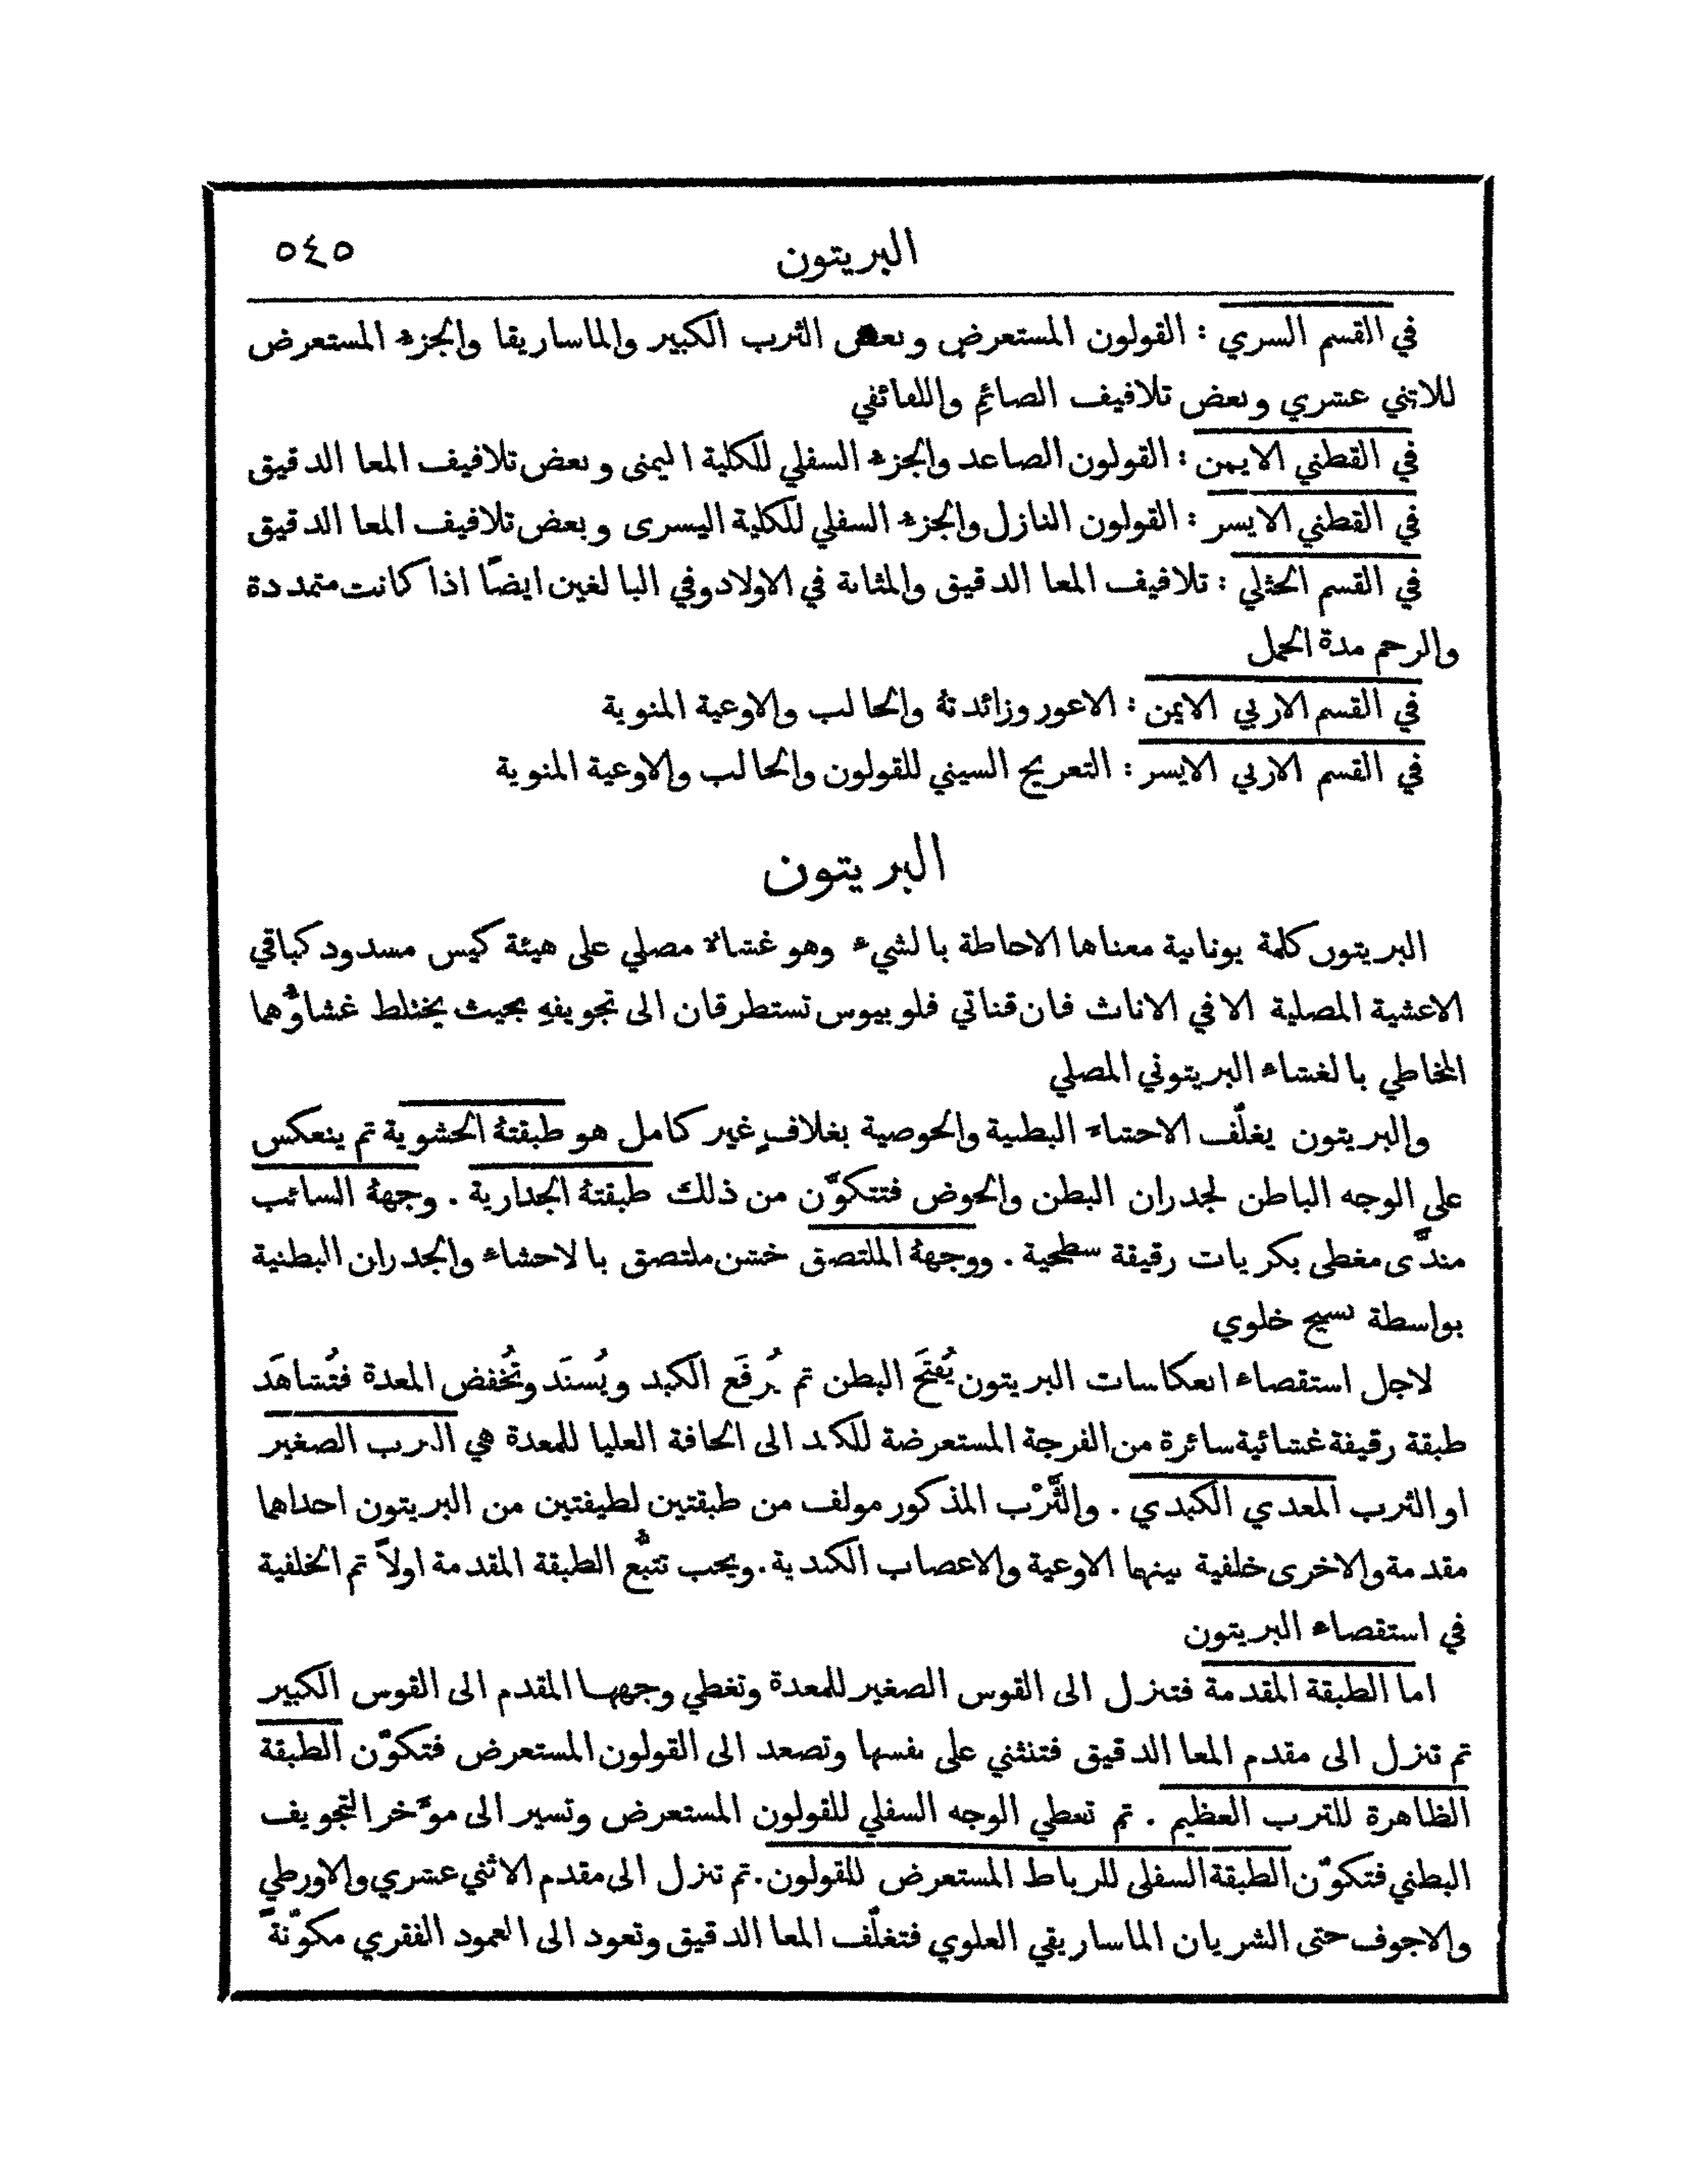 البريتون ٥٤٥
في القسم السري : القولون المستعرض وبعض الثرب الكبير والماساريقا والجزء المستعرض
للاثني عشري وبعض تلافيف الصائم واللفائفي
في القطني الايمن : القولون الصاعد والجزء السفلي للكلية اليمنى وبعض تلافيف المعا الدقيق
في القطني الايسر : القولون النازل والجزء السفلي للكلية اليسرى وبعض تلافيف المعا الدقيق
في القسم الخثلي : تلافيف المعا الدقيق والمثانة في الاولاد وفي البالغين ايضًا اذا كانت متمددة
والرحم مدة الحمل
في القسم الاربي الايمن : الاعور وزائدتهُ والحالب والاوعية المنوية
في القسم الاربي الايسر : التعريج السيني للقولون والحالب والاوعية المنوية
البريتون
البريتون كلمة يونانية معناها الاحاطة بالشيء وهو غشاء مصلي على هيئة كيس مسدود كباقي
الاغشية المصلية الا في الاناث فان قناتي فلوبيوس تستطرقان الى تجويفهِ بحيث يختلط غشاؤُهما
المخاطي بالغشاء البريتوني المصلي
والبريتون يغلّف الاحشاء البطنية والحوضية بغلافٍ غير كامل هو طبقتهُ الحشوية ثم ينعكس
على الوجه الباطن لجدران البطن والحوض فتتكوَّن من ذلك طبقتهُ الجدارية . وجههُ السائب
مندَّى مغطى بكريات رقيقة سطحية . ووجههُ الملتصق خشن ملتصق بالاحشاء والجدران البطنية
بواسطة نسيج خلوي
لاجل استقصاء انعكاسات البريتون يُفتَح البطن ثم يُرفَع الكبد ويُسنَد وتُخفض المعدة فتُشاهَد
طبقة رقيقة غشائية سائرة من الفرجة المستعرضة للكبد الى الحافة العليا للمعدة هي الثرب الصغير
او الثرب المعدي الكبدي . والثَّرْب المذكور مولف من طبقتين لطيفتين من البريتون احداها
مقدمة والاخرى خلفية بينهما الاوعية والاعصاب الكبدية . ويجب تتبُّع الطبقة المقدمة اولاً ثم الخلفية
في استقصاء البريتون
اما الطبقة المقدمة فتنزل الى القوس الصغير للمعدة وتغطي وجهها المقدم الى القوس الكبير
ثم تنزل الى مقدم المعا الدقيق فتنثني على نفسها وتصعد الى القولون المستعرض فتكوّن الطبقة
الظاهرة للثرب العظيم . ثم تغطي الوجه السفلي للقولون المستعرض وتسير الى موَّخر التجويف
البطني فتكوّن الطبقة السفلى للرباط المستعرض للقولون . ثم تنزل الى مقدم الاثني عشري والاورطي
والاجوف حتى الشريان الماساريقي العلوي فتغلّف المعا الدقيق وتعود الى العمود الفقري مكوّنةً